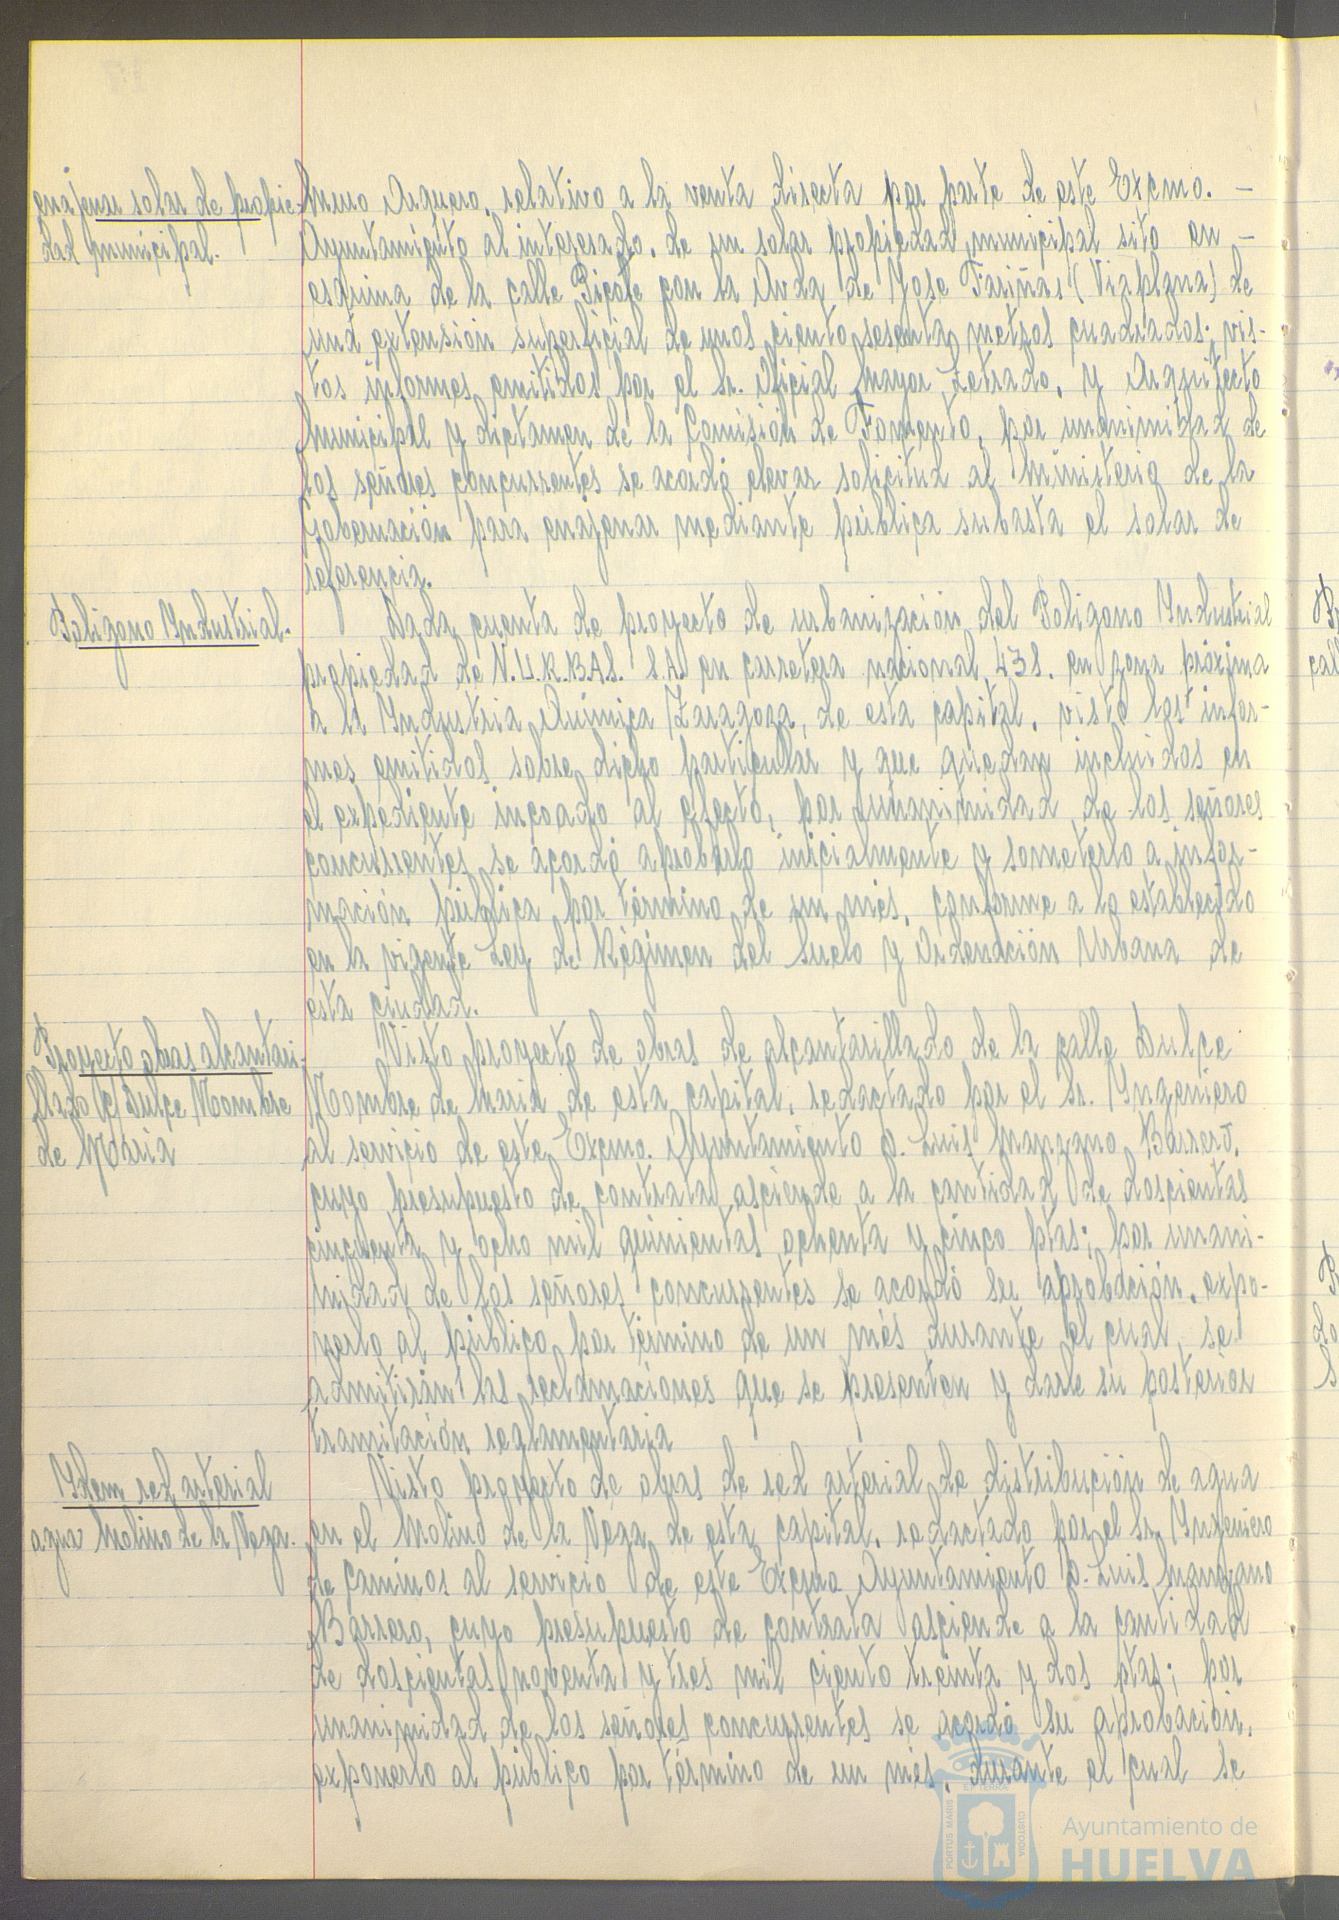 enajenar solar de propie-
dad municipal.
Muro Arquero, relativo a la venta directa por parte de este Excmo. –
Ayuntamiento al interesado, de un solar propiedad municipal sito en –
esquina de la calle Bigote con la Avda de Jose Fariñas (Viaplana) de
una extensión superficial de unos ciento sesenta metros cuadrados; vis-
tos informes emitidos por el Sr. Oficial Mayor Letrado, y Arquitecto
Municipal y dictamen de la Comisión de Fomento, por unanimidad de
los señores concurrentes se acordó elevar solicitud al Ministerio de la
Gobernación para enajenar mediante pública subasta el solar de
referencia.
Poligono Industrial.
Dada cuenta de proyecto de urbanización del Poligono Industrial
propiedad de S.A. en carretera nacional 438. en zona próxima
a la Industria Química Zaragoza, de esta capital, visto los infor-
mes emitidos sobre dicho particular y que quedan incluidos en
el expediente incoado al efecto, por unanimidad de los señores
concurrentes se acordó aprobarlo inicialmente y someterlo a infor-
mación pública por término de un més, conforme a lo establecido
en la vigente Ley de Régimen del Suelo y Ordenación Urbana de
esta ciudad.
Proyecto obras alcantari-
llado c/ Dulce Nombre
de Maria
Visto proyecto de obras de alcantarillado de la calle Dulce
Nombre de Maria de esta capital, redactado por el Sr. Ingeniero
al servicio de este Excmo. Ayuntamiento D. Luis Manzano Barrero,
cuyo presupuesto de contrata asciende a la cantidad de doscientas
cincuenta y ocho mil quinientas ochenta y cinco ptas; por unani-
midad de los señores concurrentes se acordó su aprobación, expo-
nerlo al público por término de un més durante el cual, se
admitirán las reclamaciones que se presenten y darle su posterior
tramitación reglamentaria
Idem red arterial
agua Molino de la Vega.
Visto proyecto de obras de red arterial de distribución de agua
en el Molino de la Vega de esta capital, redactado por el Sr. Ingeniero
de Caminos al servicio de este Excmo Ayuntamiento D. Luis Manzano
Barrero, cuyo presupuesto de contrata asciende a la cantidad
de doscientas noventa y tres mil ciento treinta y dos ptas; por
unanimidad de los señores concurrentes se acordó su aprobación,
exponerlo al público por término de un més, durante el cual se
PORTUS MARIS
ET TERRAE
CUSTODIA
Ayuntamiento de
HUELVA